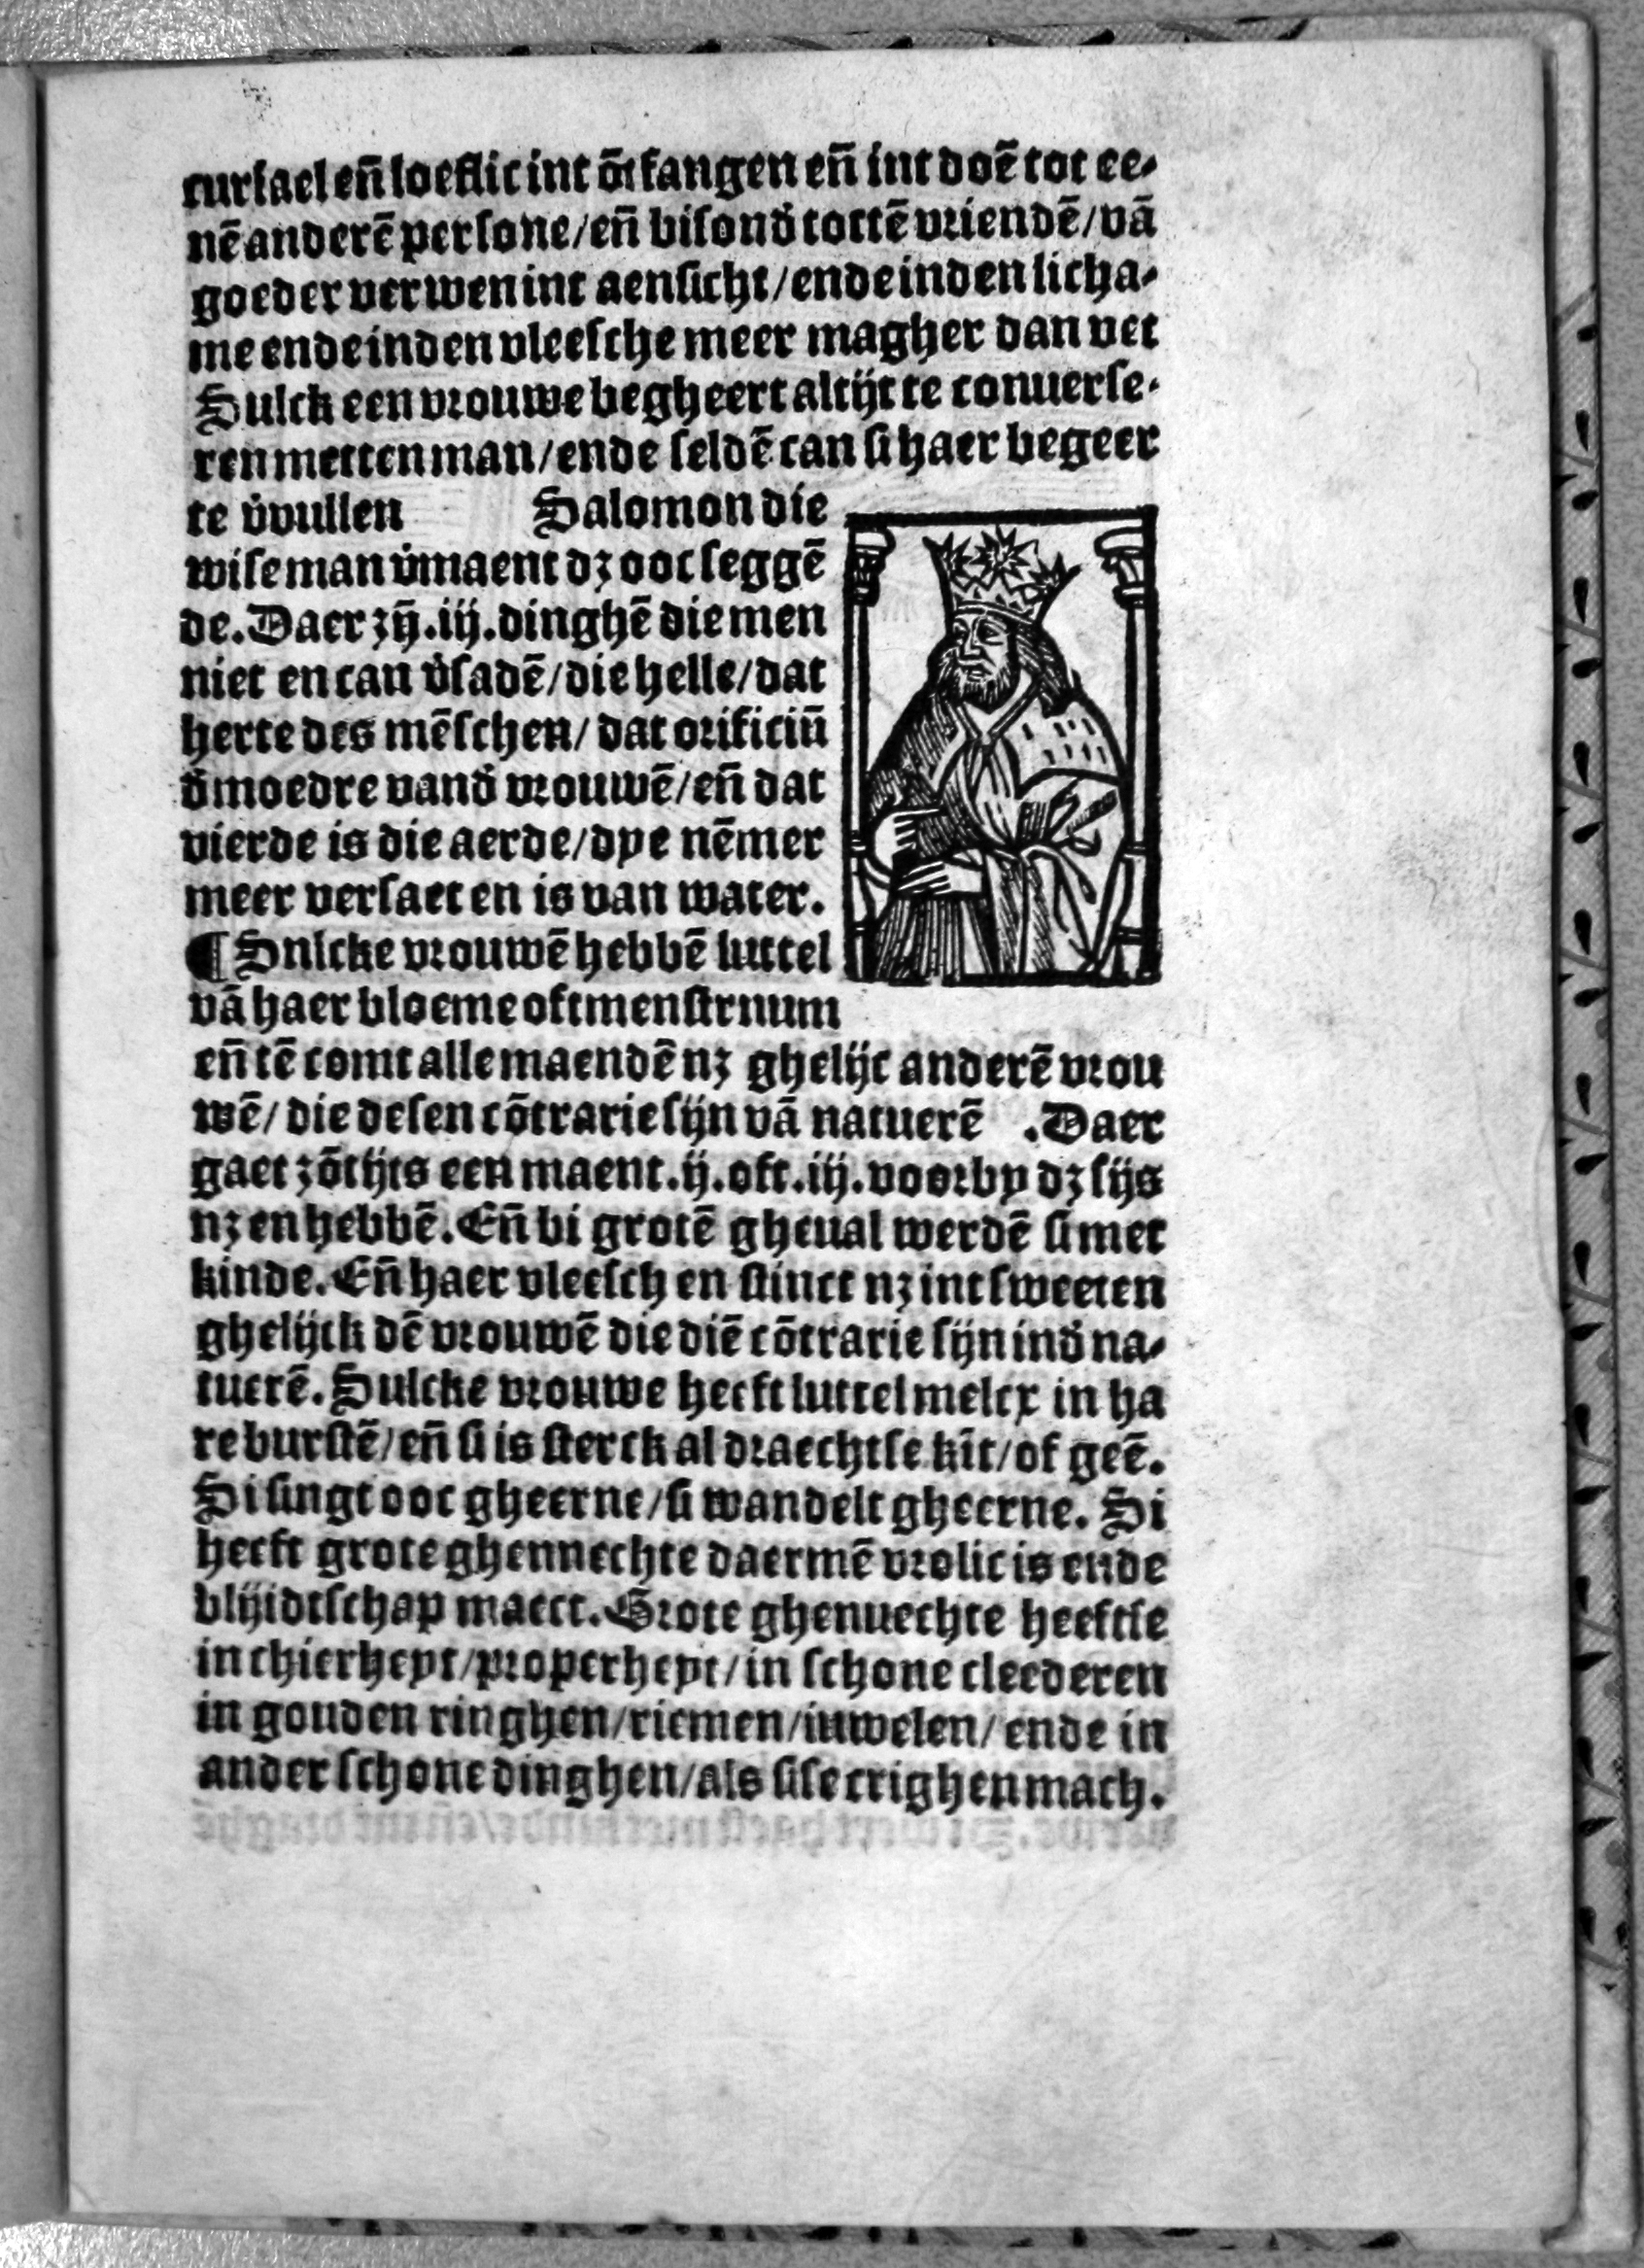 cursael en̄ loeflic int ōtfangen en̄ int doē tot ee⸗
nē anderē persone/en̄ bisond̛ tottē vriendē/vā
goeder verwen int aensicht/ende inden licha⸗
me ende inden vleesche meer magher dan vet
Sulck een vrouwe begheert altijt te conuerse⸗
ren metten man/ende seldē can si haer begeer
te v̛vullen Salomon die
wise man v̛maent dz ooc seggē
de. Daer zȳ .iij. dinghē die men
niet en can v̛sadē/die helle/dat
herte des mēschen/dat orificiū
d̛ moedre vand̛ vrouwē/en̄ dat
vierde is die aerde/dye nēmer
meer versaet en is van water.
¶ Snlcke vrouwē hebbē luttel
vā haer bloeme oft menstrnum
en̄ tē comt alle maendē nz ghelijc anderē vrou
wē/die desen cōtrarie sijn vā natuerē .Daer
gaet zōtijts een maent .ij. oft .iij. voorby dz sijs
nz en hebbē. En̄ bi grotē gheual werdē si met
kinde. En̄ haer vleesch en stinct nz int sweeten
ghelijck dē vrouwē die diē cōtrarie sijn ind̛ na⸗
tuerē. Sulcke vrouwe heeft luttel melcx in ha
re burstē/en̄ si is sterck al draechtse kīt/of geē.
Si singt ooc gheerne/si wandelt gheerne. Si
heeft grote ghennechte daermē vrolic is ende
blijidtschap maect. Grote ghenuechte heeftse
in chierheyt/properheyt/in schone cleederen
in gouden ringhen/riemen/iuwelen/ende in
ander schone dinghen/als sise crighen mach.